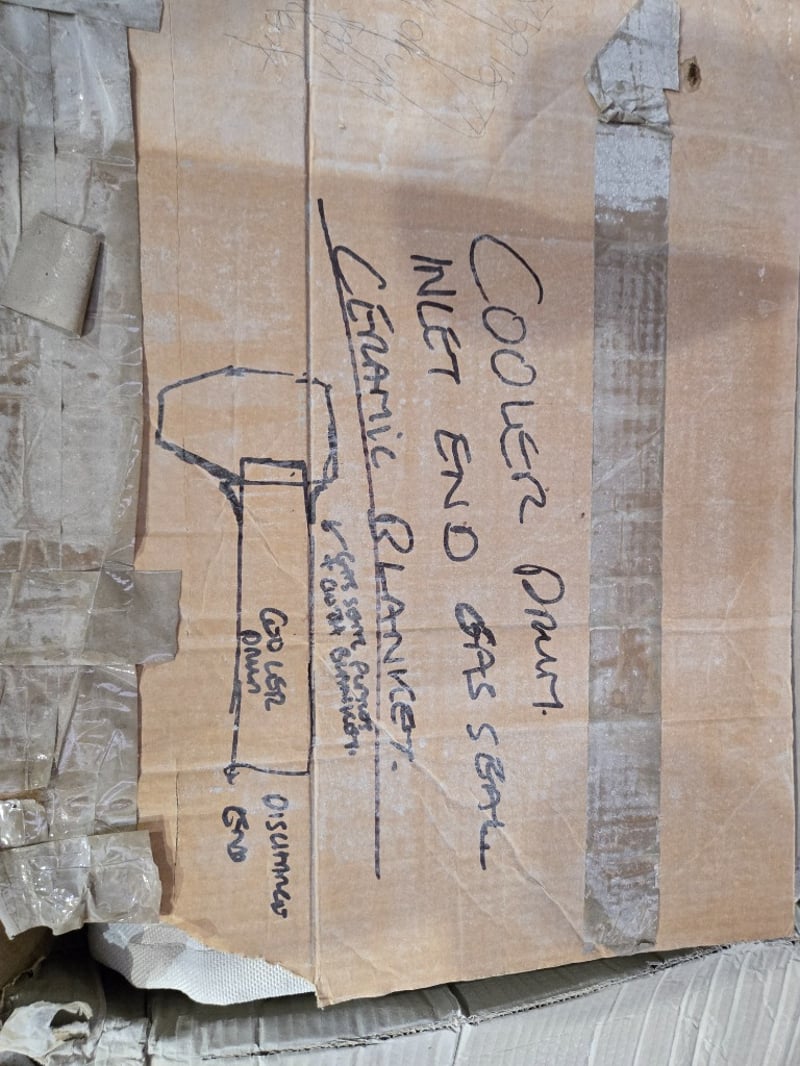 COOLER DRUM.
INLET END GAS SEAL
CERAMIC BLANKET.
GAS SEAL PLATES
BLANKET.
COOLER
DRUM
DISCHARGE
END